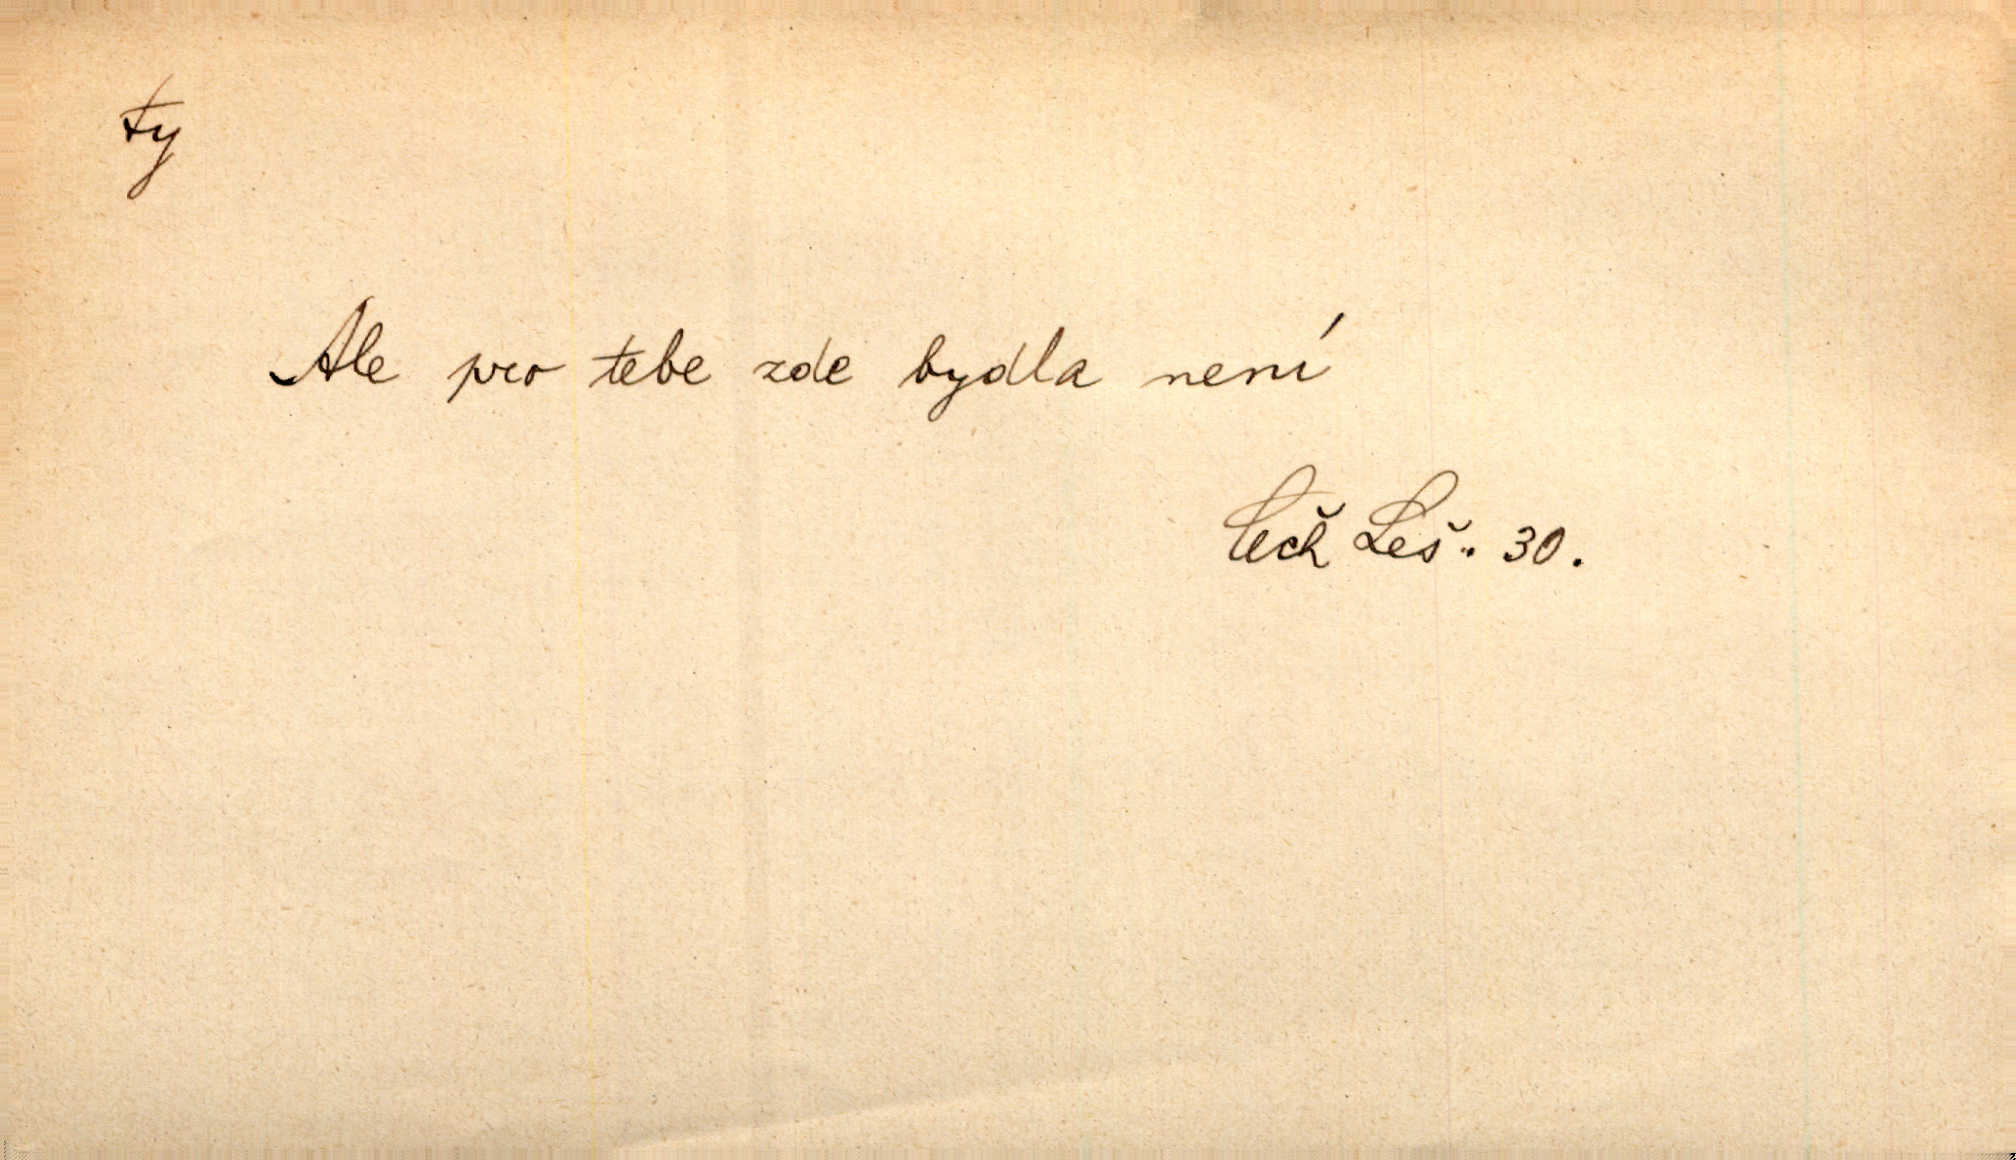 ty
Ale pro tebe zde bydla není
Čech Leš. 30.